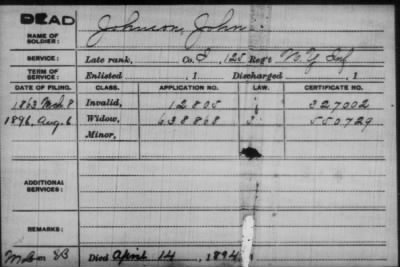 DEAD
NAME OF SOLDIER: Johnson, John
SERVICE: Late rank, Co. I, 125 Reg't N.Y. Inf
TERM OF SERVICE: Enlisted , 1 Discharged , 1
DATE OF FILING. CLASS. APPLICATION NO. LAW. CERTIFICATE NO.
1863 Mch 8 Invalid, 12805 327002
1896, Aug. 6 Widow, 638868 550729
Minor,
ADDITIONAL SERVICES:
REMARKS:
Died April 14, 1894